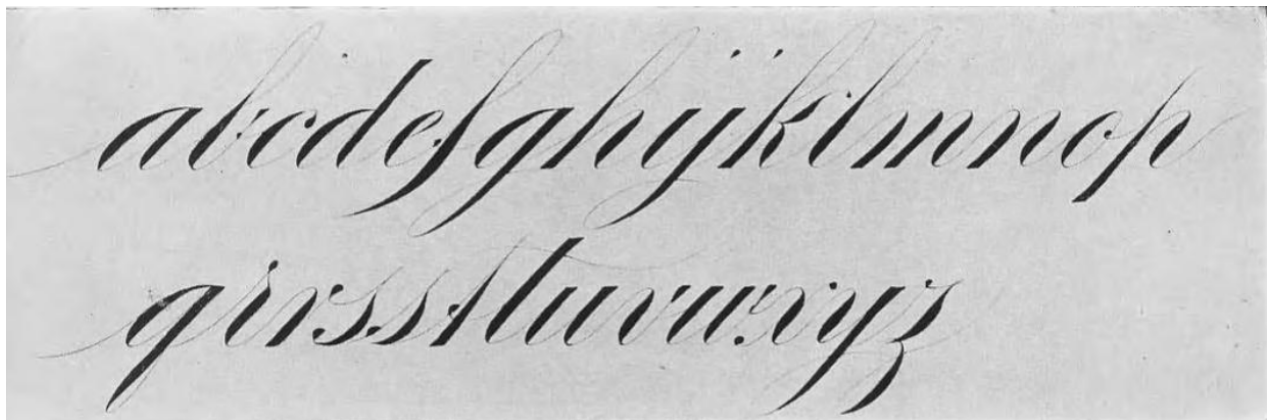 abcdefghijklmnop
qrrssttuvwxyz